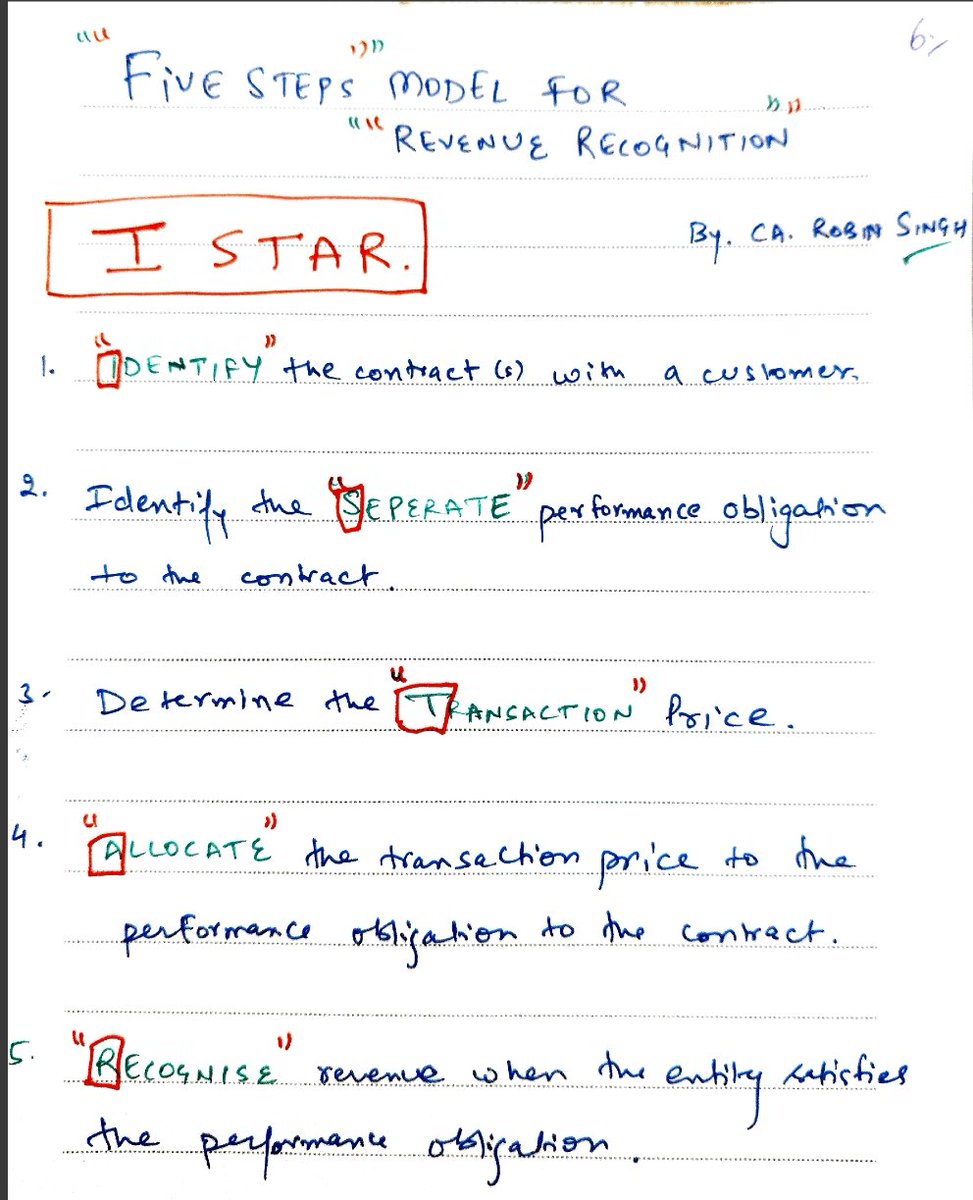 6/-
""FIVE STEPS"" MODEL FOR
""REVENUE RECOGNITION""
I STAR.
By. CA. ROBIN SINGH
1. "IDENTIFY" the contract (s) with a customer.
2. Identify the "SEPERATE" performance obligation
to the contract.
3. Determine the "TRANSACTION" Price.
4. "ALLOCATE" the transaction price to the
performance obligation to the contract.
5. "RECOGNISE" revenue when the entity satisfies
the performance obligation.